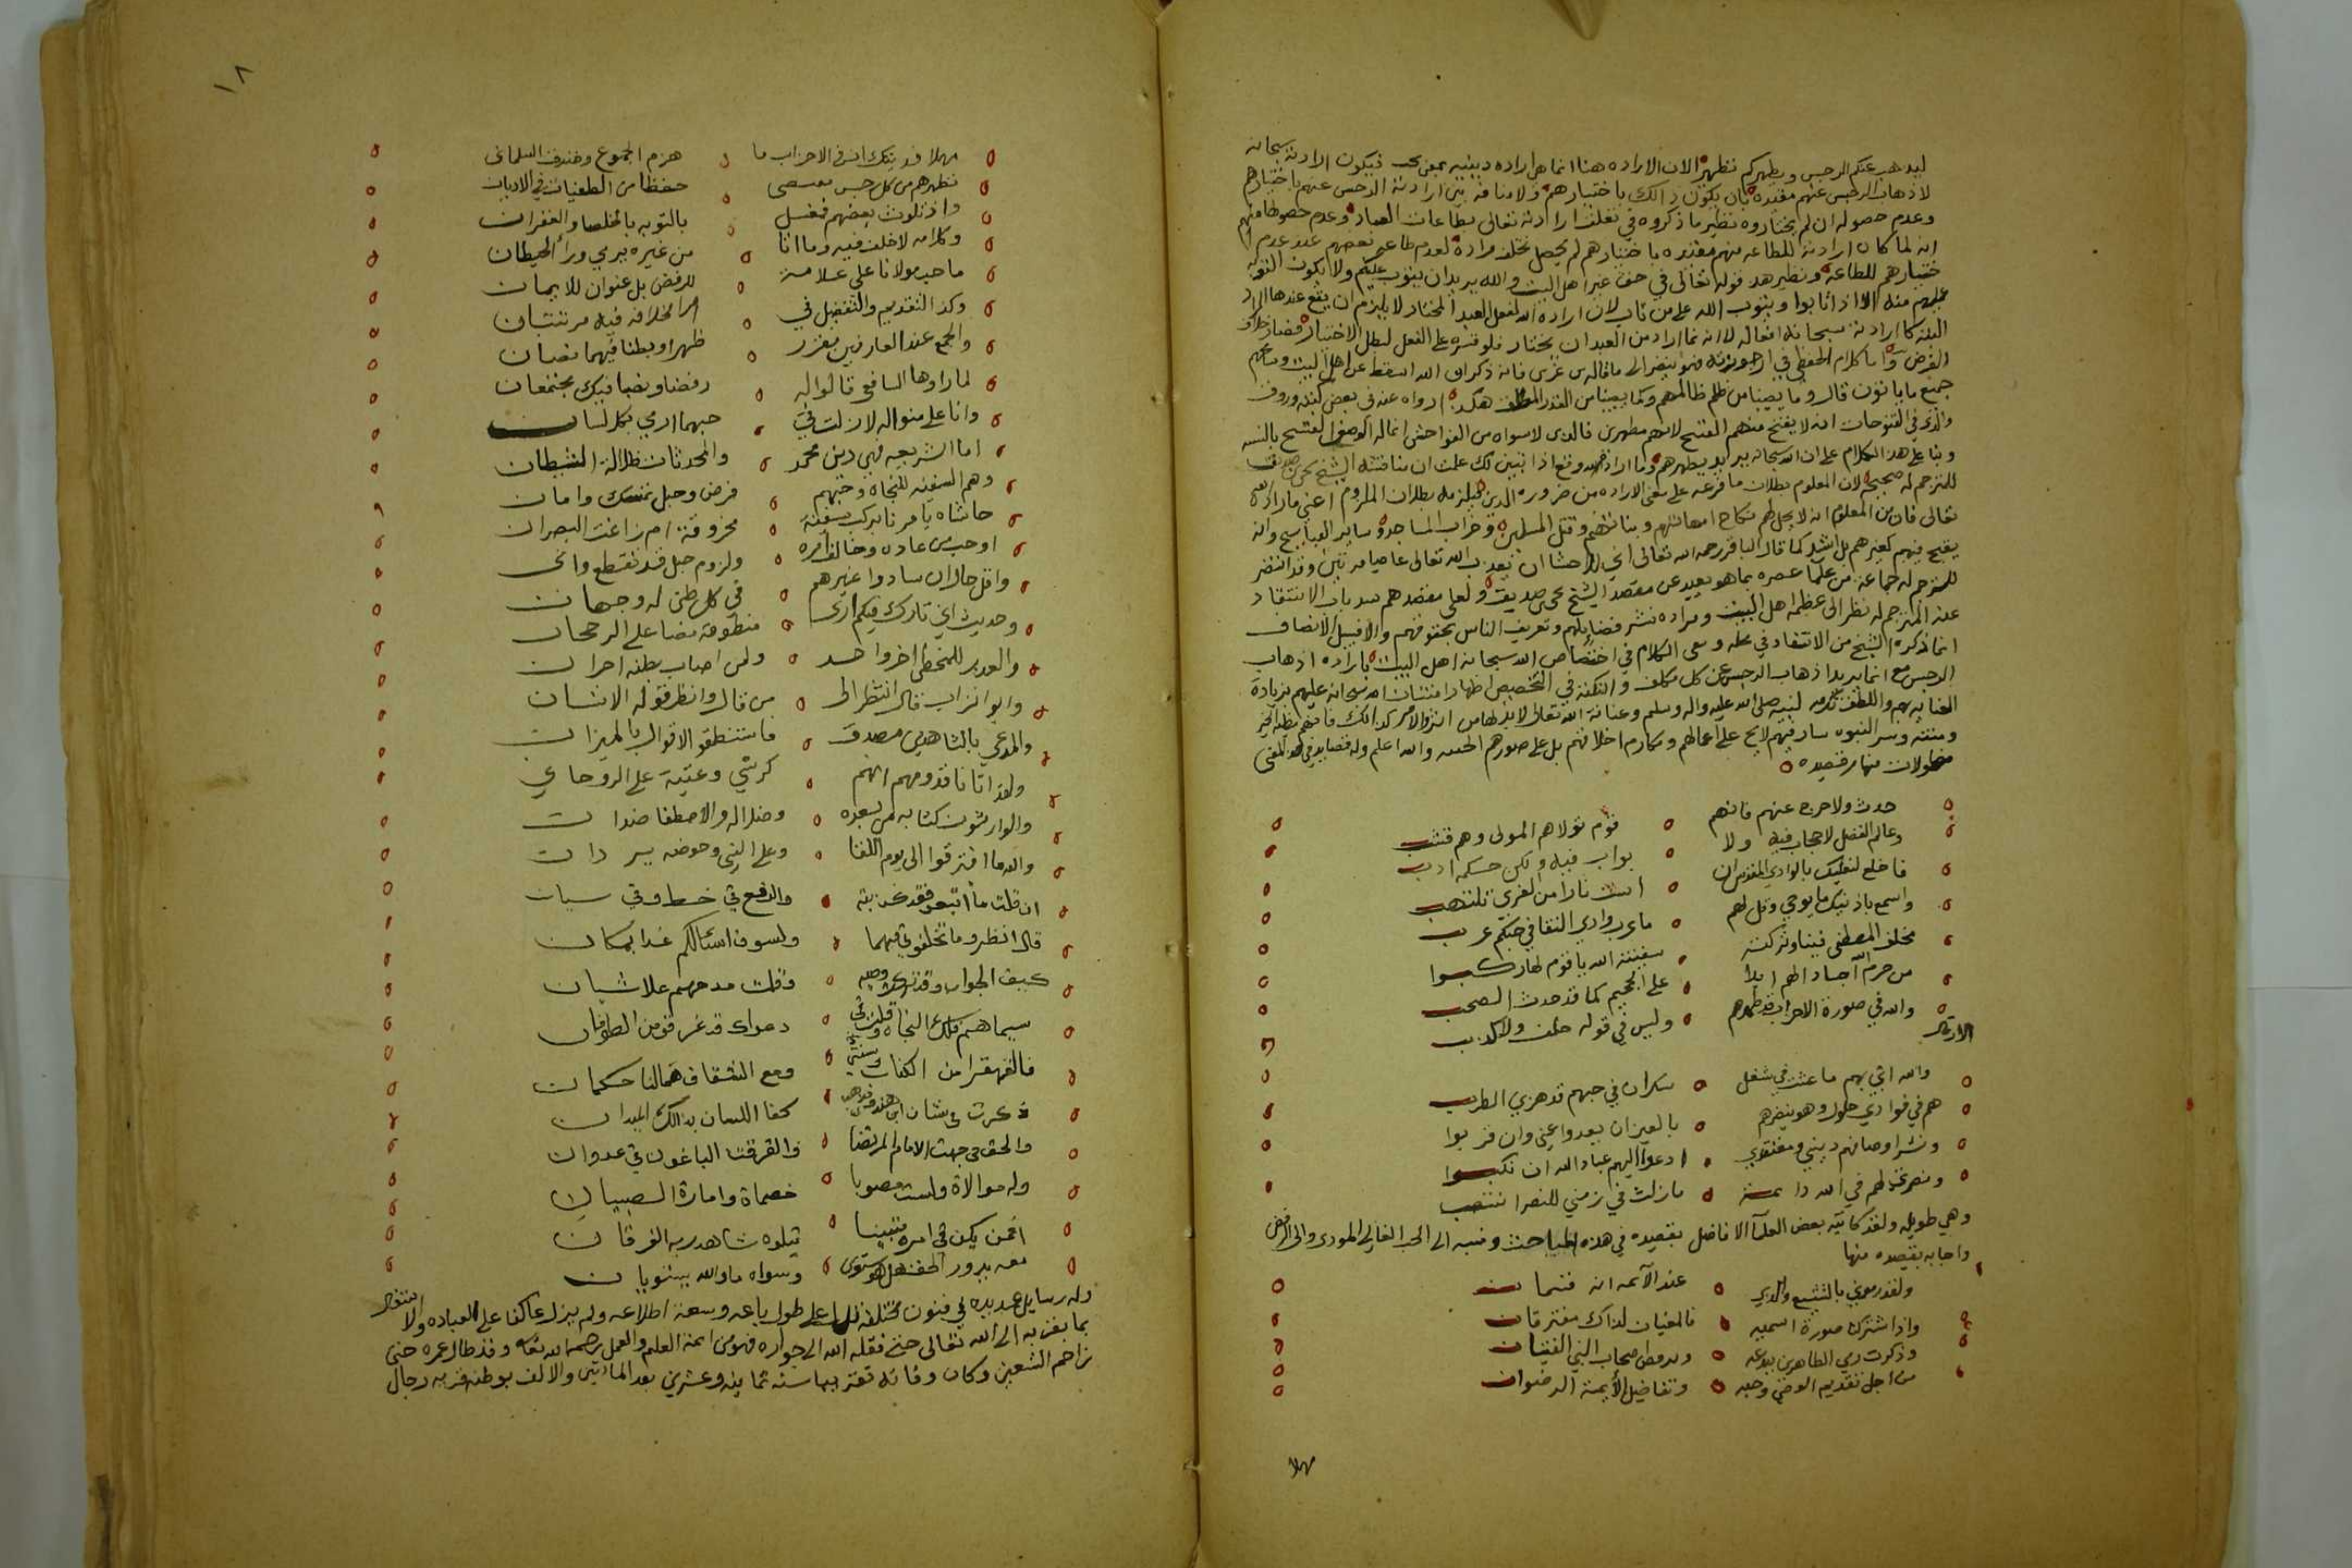 ليذهب عنكم الرجس ويطهركم تطهيرا لان الاراده هنا انما هي اراده دينيه بمعنى يحب فيكون ارادته سبحانه
لاذهاب الرجس عنهم مقيده بان يكون ذالك باختيارهم ولا منافه بين ارادته الرجس عنهم باختيارهم
وعدم حصوله ان لم يختاروه نظير ما ذكروه في تعلق ارادته تعالى بطاعات العباد وعدم حصولها منهم
انه لما كان ارادته للطاعه منهم مقيده باختيارهم لم يحصل تخلف مراده لعدم طاعه بعضهم عند عدم ا
ختيارهم للطاعه ونظير هذ قوله تعالى في حق غير اهل البيت والله يريد ان يتوب عليكم ولا يكون التوبه
عليهم منه الا اذا تابوا ويتوب الله على من تاب لان اراده الله لفعل العبد المختار لا يلزم ان يقع عندها المراد
البته كارادته سبحانه افعاله لانه انما اراد من العبد ان يختار فلو قسره على الفعل لبطل الاختيار فصار خلاف
الفرض واما كلام الحفظي في ارجوزته فهو ينظر الى ما قاله بن عربي فانه ذكر ان الله اسقط عن اهل البيت
جميع ما ياتون قال وما يصيبنا من ظلم ظالمهم وكما يصيبنا من القدر هكذا رواه عنه في بعض كتبه
والذي في الفتوحات انه لا يقبح منهم القبيح لانهم مطهرين فالذي لا سواه من الفواحش انما له الوصف القبيح بالنسبه
وبنا على هذ الكلام على ان الله سبحانه يريد يطهرهم وما اراده وقع اذا تبين لك علمت ان مناقشه الشيخ محسن صديق
للمترجم له صحيحه لان المعلوم بطلان ما فرعه على معنى الاراده من ضرورة الدين فيلزمه بطلان الملزوم اعني ما اراده الله
تعالى فان من المعلوم انه لا يحل لهم نكاح امهاتهم وبناتهم وقتل المسلمين وخراب المساجد وساير القبايح وانه
يقبح منهم كغيرهم بل اشد كما قال الباقر رحمه الله تعالى اني لاخشا ان يعذب الله تعالى عاصيا مرتين وقد انتصر
للمترجم له جماعة من علما عصره بما هو بعيد عن مقصد الشيخ محسن صديق ولعل مقصدهم سد باب الانتقاد
عند المترجم له نظر الى عظمه اهل البيت ومراده نشر فضايلهم وتعريف الناس بحقوقهم والا فسبيل الانصاف
انما ذكره الشيخ من الانتقاد في محله وسمى الكلام في اختصاص الله سبحانه اهل البيت باراده اذهاب
الرجس مع انما يريد اذهاب الرجس عن كل مكلف والنكته في التخصيص اظهار امتنان الله سبحانه عليهم بزيادة
العنايه بهم واللطف لنبيه صلى الله عليه واله وسلم وعناية الله تعالى لا بد لها من اثر والامر كذالك فانهم مظنه الخير
ومنته وسر النبوه سار فيهم لايح على اعمالهم ومكارم اخلاقهم بل على صورهم الحسنه والله اعلم وله قصايد في هذ المعنى
مطولات منها من قصيده
حدث ولا حرج عنهم فانهم قوم تولاهم المولى وهم قشب
وعالم الفضل لا حجاب فيه ولا بواب فيه ولكن حسكه ادب
فاخلع لنعليك بالوادي المقدس ان انست نارا من لغزي تلتهب
واسمع باذنيك ما يوحي وقل لهم ما عرب وادي النقا في حبكم عرب
مخلف المصطفى فينا وتركته سفينته الله يا قوم لها ركبوا
من حرم الله اجسادا لهم ابدا على الجحيم كما قد حدث الصحب
والله في صورة الاحزاب قد طهرهم وليس في قوله خلف ولا كذب
الا ان قال
والله اني بهم ما عشت في شغل سكران في حبهم قد هزني الطرب
هم في فوادي حلول وهو ينظرهم بالعين ان بعدوا عني وان قربوا
ونشر اوصافهم ديني ومعتقدي ادعوا اليهم عباد الله ان نكبوا
ونصرتي لهم في الله دائمة مازلت في زمني للنصر انتصب
وهي طويله ولقد كاتبه بعض العلمآ الافاضل بقصيده في هذه المباحث ونسبه الى الحب الغالي المودي والى الرفض
واجابه بقصيده منها
ولقد رموني بالتشيع والذي عند الآئمه انه قسمان
واذا اشترك صورة اسميه فالمعنيان لذاك مفترقان
وذكرت رمي الطاهرين ببدعه وبرفض صحاب النبي الفتيان
من اجل تقديم الوصي وحبه وتفاضل الأيمة الرضوان
مهلا
١٨
مهلا فديتك ان في الاحزاب ما هزم الجموع وخندق السلماني
تطهيرهم من كل رجس حفظا من الطغيان في الاديان
واذ تلوث بعضهم فغسل بالتوبه باخلصا والغفران
وكلامه لا خلف فيه وما انا من غيره برمي ورأ الحيطان
ما حب مولانا على علامة للرفض بل عنوان للايمان
وكذ التقديم والتفضيل في امر الخلافه فيه مرتبتان
والجمع عند العارفين مقرر ظهرا وبطنا فيهما نصبان
لما راوها الشافعي قالوا له رفضا ونصبا فيك يجتمعان
وانا على منواله لازلت في حبهما ارمي بكل لسان
اما الشريعه فهي دين محمد والمحدثات ضلالة الشيطان
وهم السفينه للنجاه وحبهم فرض وحبل تمسك وامان
حاشاه يامرنا بركب سفينة مخروقة ام زاغت البصران
او حب من عاده وخالف امره ولزوم حبل قد تقطع
واقل حال ان ساوا غيرهم في كل ظن له وجهان
وحديث اني تارك فيكم ارى منطوقه نصا على الرجحان
والعدير للمخطي اخرو احد ولمن اصاب بظنه اجران
وابو اتراب قال انظر الى من قال وانظر قوله الانسان
والمدعي بالشاهدين مصدق فاستنطقوا الاقوال بالميزان
ولقد اتانا قدومهم انهم كرشي وعيبة على الروحاني
والوارثون كتابه من بعده وخلاله والاصطفا ضدان
والله ما افترقوا الى يوم اللقا وعلى النبي وحوضه يردان
ان قلت ما اتبعو فقد كذبته والدفع في خطا وفي سيان
قال انظرو ما تخلفوني فيهما ولسوف اسئالكم غدا بمكان
كيف الجواب وقلت مدحهم علا شيان
سيما هم فلك النجاه دعواك قد غرقو من الطوفان
فالقهقرا من الكتاب وسنتي ومع الشقاق هما لنا حكمان
ذكرت في شان كحفا اللسان بذالك الميدان
والحق في جهت الامام المرتضا والفرقت الباغون في عدوان
وله موالاة ولست مصوبا خصماة وامارة الصبيان
افمن يكن في امره متبينا يتلوه شاهد ربه الفرقان
معه يدور الحق هل هو مستوى وسواه ما والله يستويان
وله رسايل عديده في فنون مختلفه تدل على طول باعه وسعة اطلاعه ولم يزل عاكفا على العباده والاشتغال
بما يقربه الى الله تعالى حتى نقله الله الى جواره فهو من ائمة العلم والعمل رحمه الله تعالى وقد طال عمره حتى
زاحم التسعين وكان وفاته تقريبا سنه ثمانيه وعشرين بعد المأتين والالف بوطنه قريه رجال